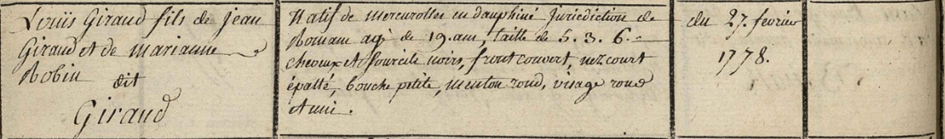 Loüis Giraud fils de jean
Giraud et de marianne
Robin
dit
Giraud
Natif de mercurolles en dauphiné jurisdiction de
Romans agé de 19. ans, taille de 5. 3. 6.
cheveux et sourcils noirs, front couvert, nez court
épatté, bouche petite, menton rond, visage rond
et uni.
du 27. fevrier
1778.